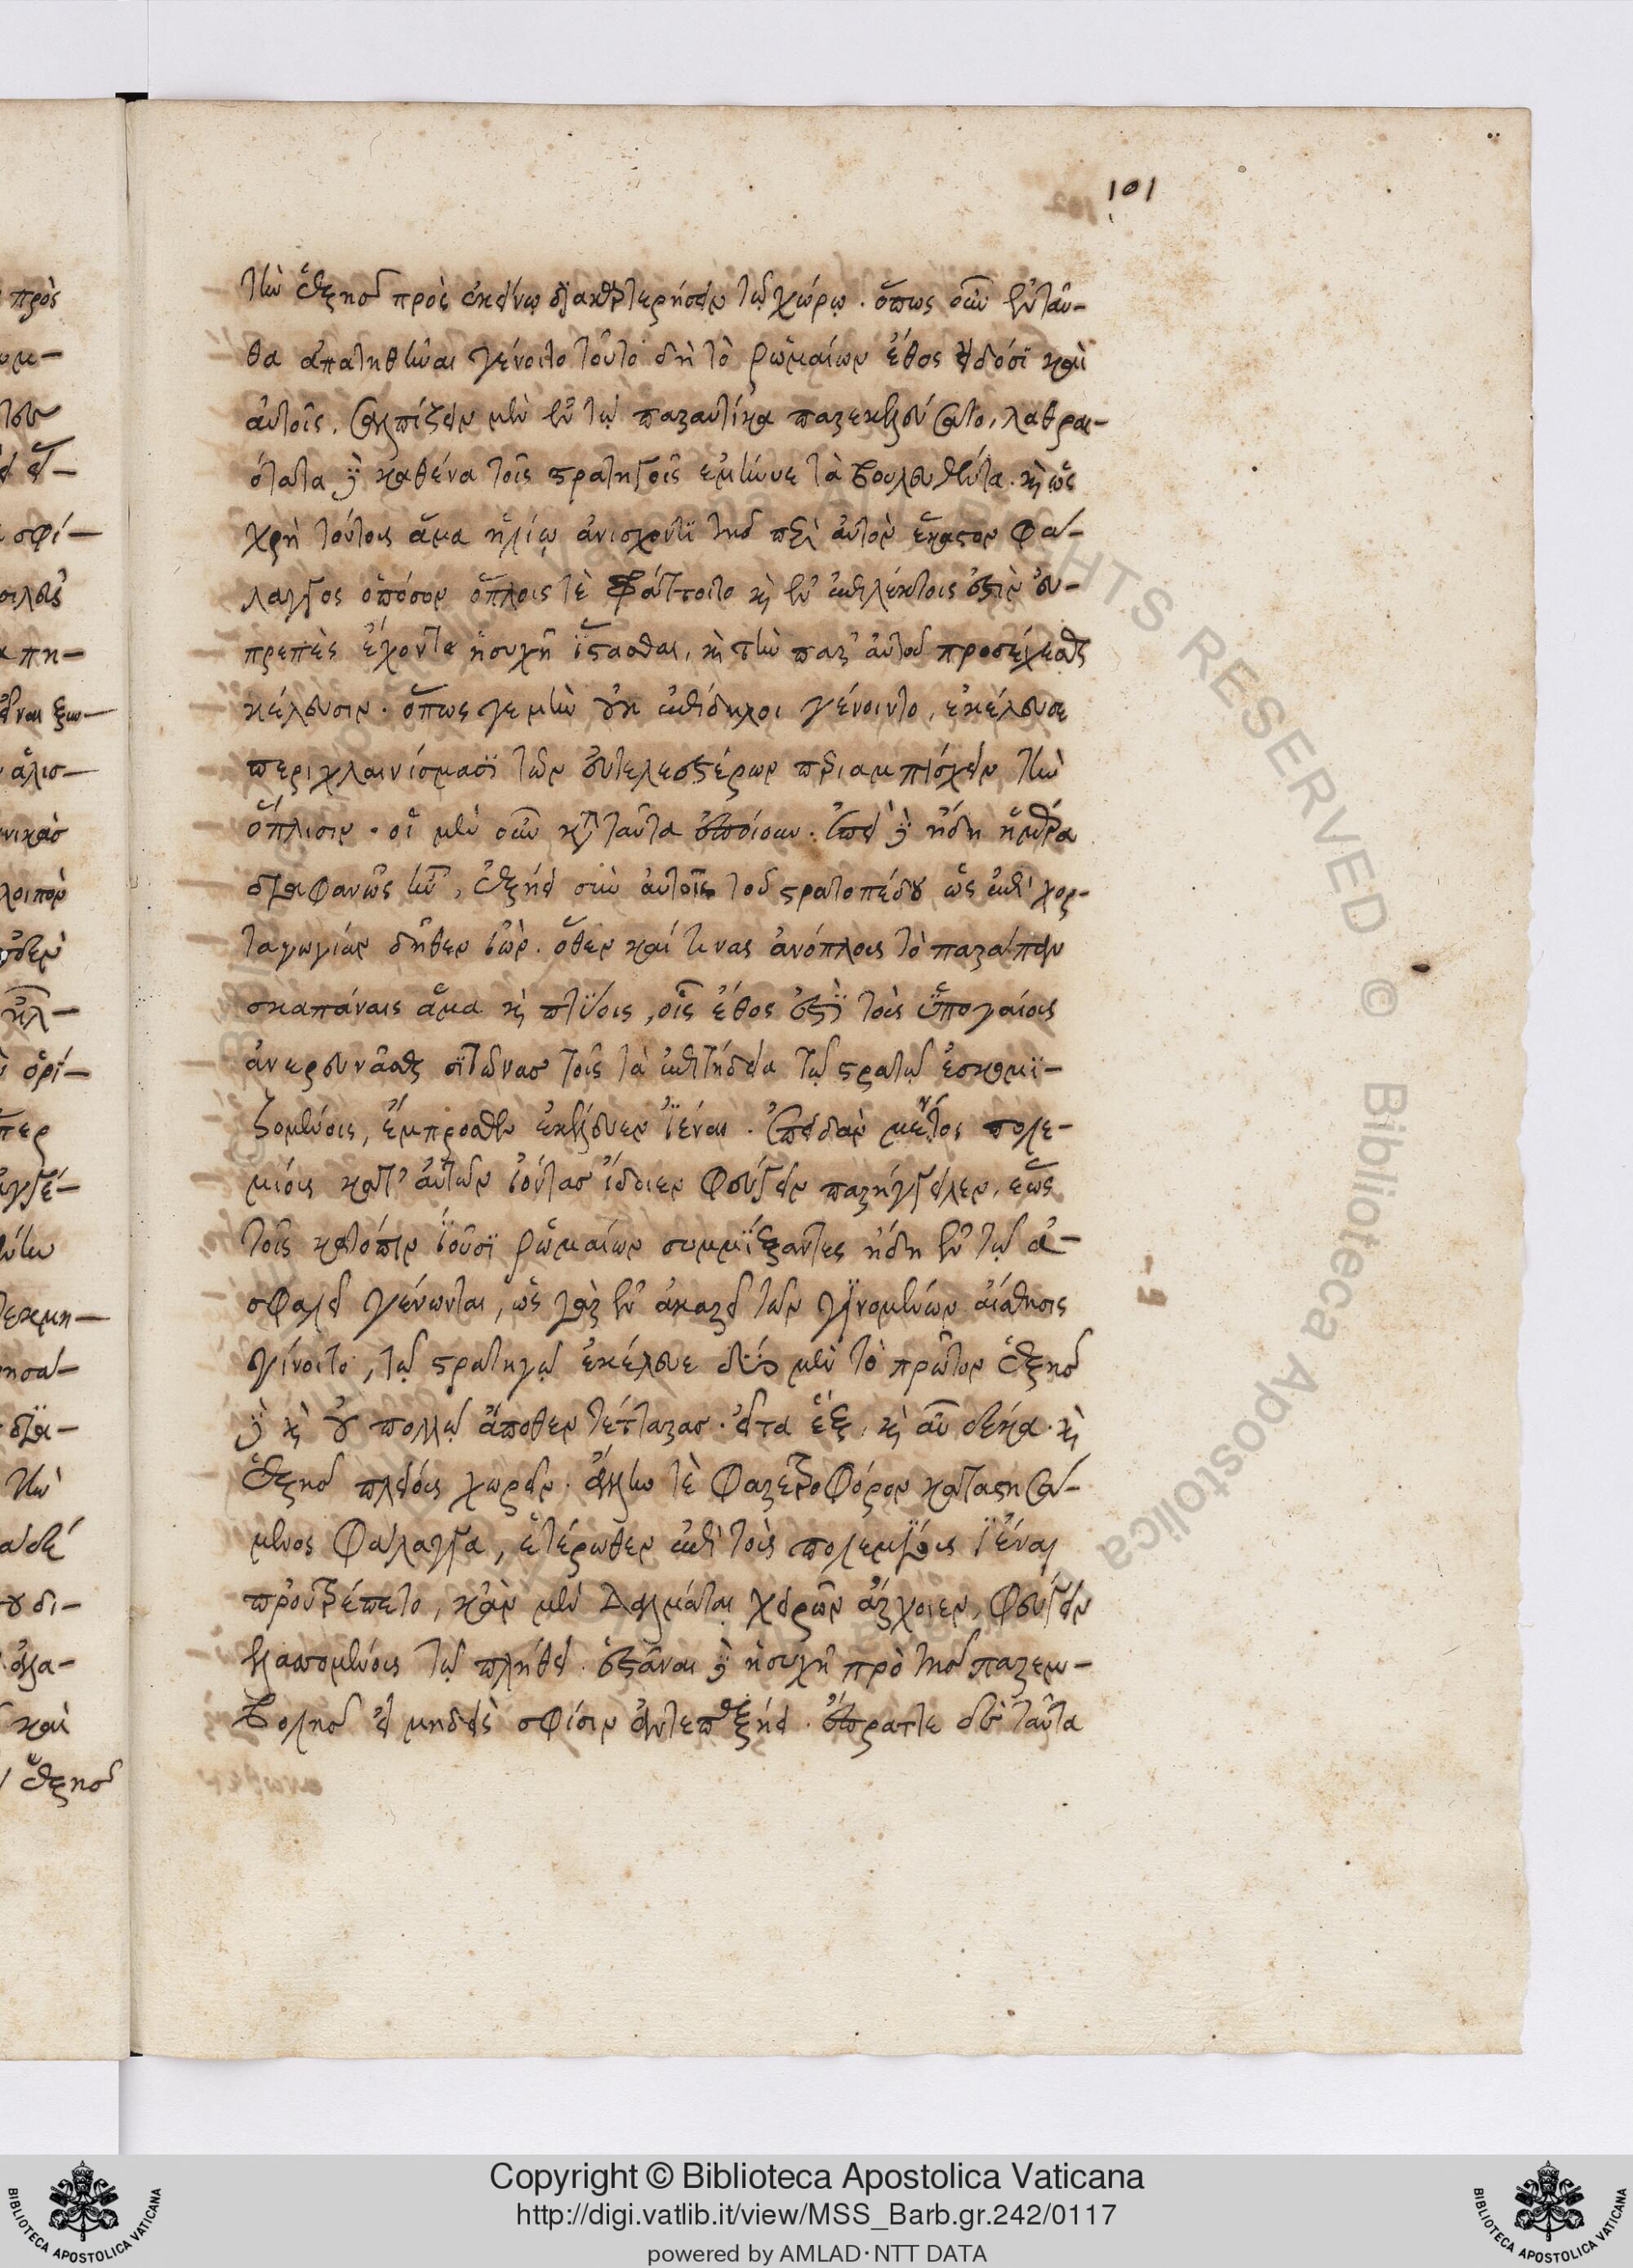 101
τὴν ἑξῆς πρὸς ἐκείνῳ διακαρτερήσειν τῷ χώρῳ. ὅπως οὖν ἐνταῦ-
θα ἀπατηθῆναι γένοιτο τοῦτο δὴ τὸ ῥωμαίων ἔθος εἰδόσι καὶ
αὐτοῖς, σαλπίζειν μὲν ἐν τῷ παραυτίκα παρεκελεύσατο, λαθραι-
ότατα δὲ καθένα τοῖς στρατηγοῖς ἐμήνυε τὰ βουλευθέντα. καὶ ὡς
χρὴ τούτους ἅμα ἡλίῳ ἀνισχοντι τῆς περὶ αὐτὸν ἕκαστον φά-
λαγγος ὁπόσον ὅπλοις τὲ φράττοιτο καὶ ἐν ἐπιλέκτοις ἐστὶν εὐ-
πρεπὲς ἔχοντα ἡσυχῆ ἵστασθαι, καὶ τὴν παρ' αὐτοῦ προσδέχεσθαι
κέλευσιν. ὅπως γε μὴν οὐκ ἐπίδηλοι γένοιντο, ἐκέλευσε
περιχλαινίσμασι τῶν εὐτελεστέρων περιαμπίσχειν τὴν
ὅπλισιν. οἱ μὲν οὖν κατὰ ταῦτα ἐποίουν. ἐπεὶ δὲ ἤδη ἡμέρα
διαφανῶς ἦν, ἐξῄει σὺν αὐτοῖς τοῦ στρατοπέδου ὡς ἐπὶ χορ-
ταγωγίαν δῆθεν ἰών. ὅθεν καί τινας ἀνόπλους τὸ παράπαν
σκαπάναις ἅμα καὶ πτύοις, οἷς ἔθος ἐστὶ τοὺς ὑπογαίους
ἀνερευνᾶσθαι σιτῶνας τοῖς τὰ ἐπιτήδεια τῷ στρατῷ ἐσκομι-
ζομένοις, ἔμπροσθεν ἐκέλευεν ἰέναι. ἐπειδὰν μέντοι πολε-
μίους κατ' αὐτῶν ἰόντας ἴδοιεν φεύγειν παρήγγειλεν, ἕως
τοῖς κατόπιν ἰοῦσι ῥωμαίων συμμίξαντες ἤδη ἐν τῷ ἀ-
σφαλεῖ γένωνται, ὡς γὰρ ἐν ἀκαρεῖ τῶν γινομένων αἴσθησις
γίνοιτο, τῷ στρατηγῷ ἐκέλευε δύο μὲν τὸ πρῶτον ἑξῆς
δὲ καὶ οὐ πολλῷ ἄποθεν τέτταρας. εἶτα ἓξ, καὶ αὖ δέκα. καὶ
ἑξῆς πλείους χωρεῖν. ἄλλην τὲ φαρετροφόρον καταστησά-
μενος φάλαγγα, ἑτέρωθεν ἐπὶ τοὺς πολεμίους ἰέναι
προὐτρέπετο, κἂν μὲν Δαλμάται χειρῶν ἄρχοιεν, φεύγειν
ἐλασσομένους τῷ πλήθει. ἑστᾶναι δὲ ἡσυχῆ πρὸ τῆς παρεμ-
βολῆς εἰ μηδεὶς σφίσιν ἀντεπεξῄει. ἔπραττε δὲ ταῦτα
RIGHTS RESERVED © Biblioteca Apostolica
Copyright © Biblioteca Apostolica Vaticana
http://digi.vatlib.it/view/MSS_Barb.gr.242/0117
powered by AMLAD·NTT DATA
BIBLIOTECA APOSTOLICA VATICANA
BIBLIOTECA APOSTOLICA VATICANA